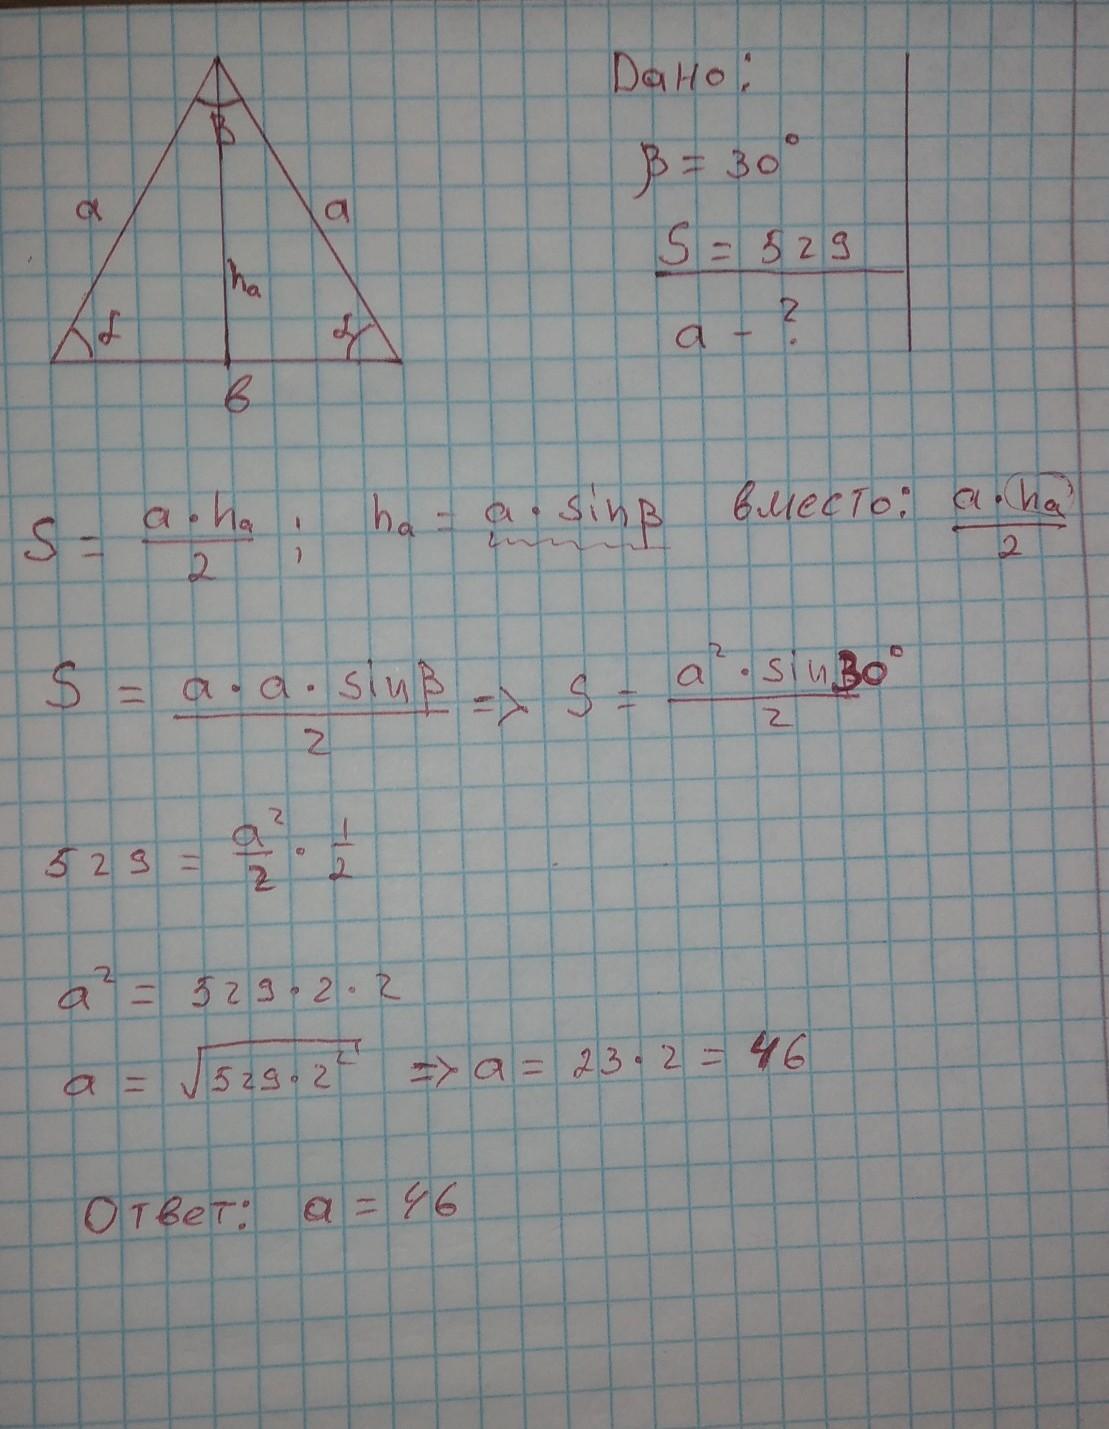 Дано:
β
β = 30°
a a
S = 529
hₐ
a - ?
α α
в
S = a · hₐ / 2 ; hₐ = a · sinβ вместо: a · hₐ / 2
S = a · a · sinβ / 2 => S = a² · sin30° / 2
529 = a²/2 · 1/2
a² = 529 · 2 · 2
a = √529 · 2² => a = 23 · 2 = 46
Ответ: a = 46